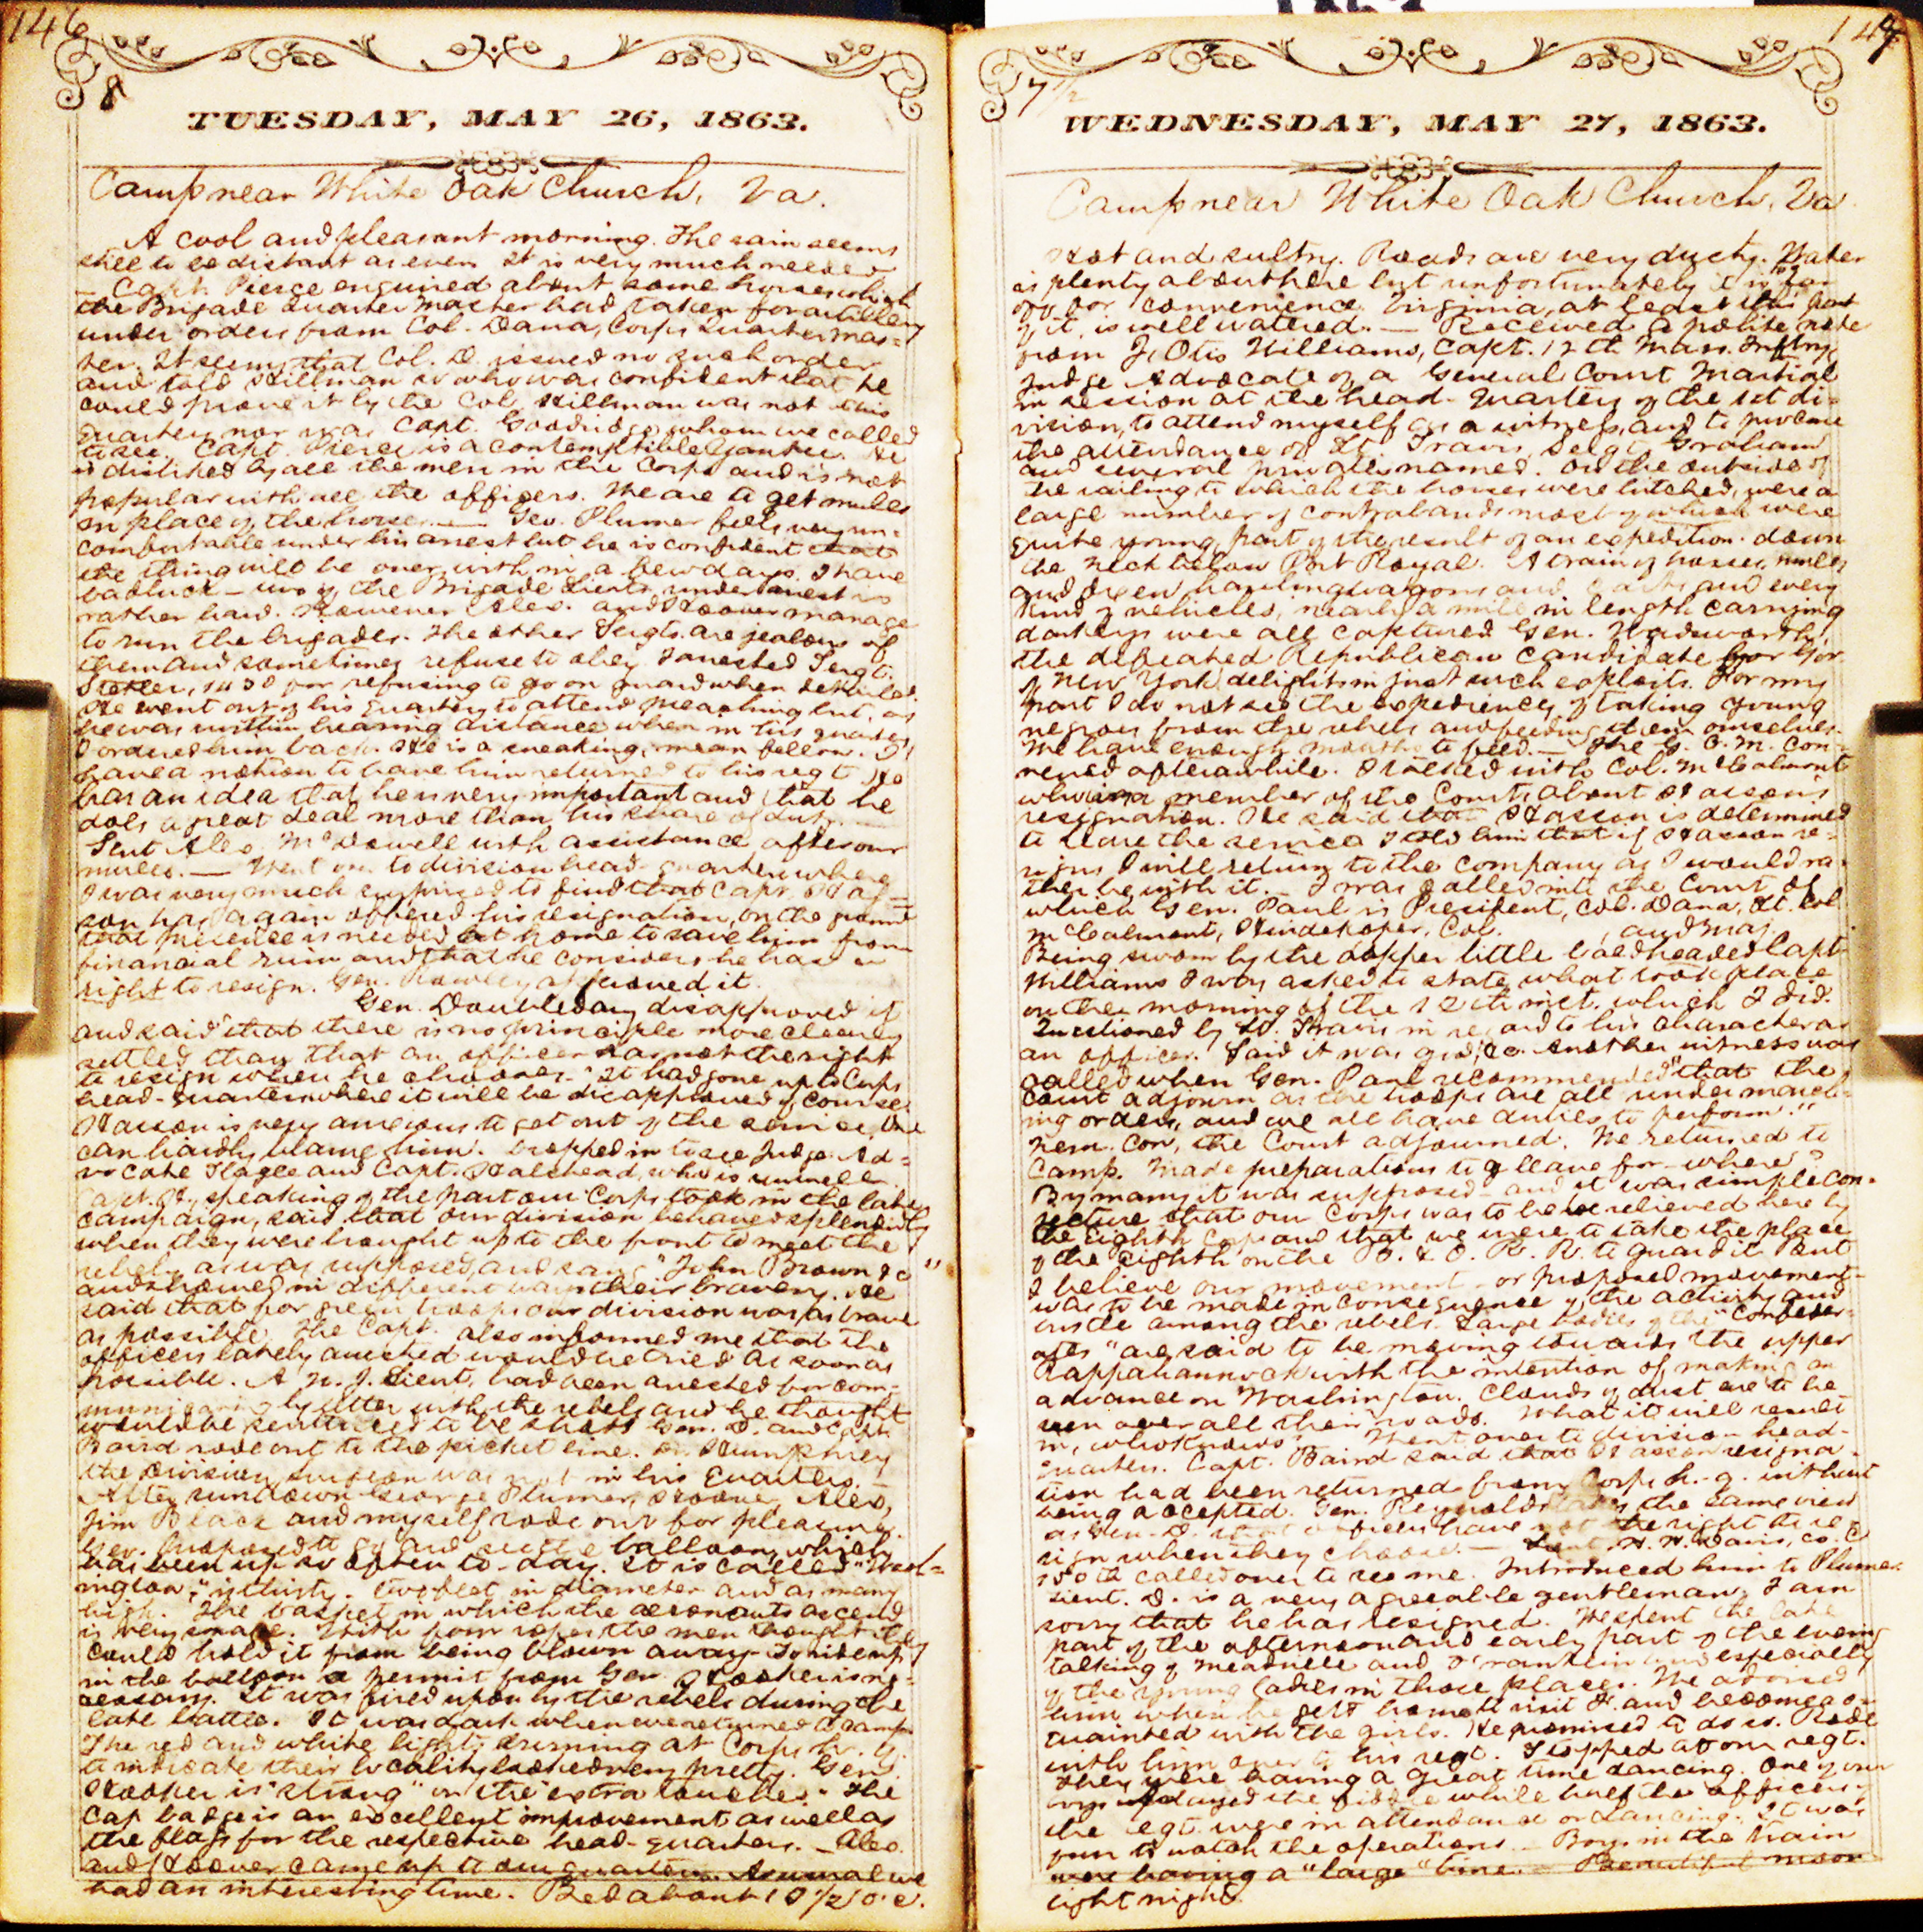 146
8
TUESDAY, MAY 26, 1863.
Camp near White Oak Church, Va.
A cool and pleasant morning. The rain seems
still to be distant as ever. It is very much needed
— Capt. Pierce enquired about some horses which
the Brigade Quarter Master had taken for artillery
under orders from Col. Dana, Corps Quartermas=
ter. It seems that Col. D. issued no such order
and told Hillman so who was confident that he
could prove it by the Col. Hillman was not this
quarters nor was Capt. Goodridge whom we called
to see. Capt. Pierce is a contemptible Yankee. He
is disliked by all the men in the Corps and is not
popular with all the officers. We are to get mules
in place of the horses. — Geo. Plumer feels very un-
comfortable under his arrest but he is confident that
the thing will be over with in a few days. I have
bad luck — two of the Brigade Lieuts. under arrest is
rather hard. However Alex. and Hoover manage
to run the brigades. The other Sergts. are jealous of
them and sometimes refuse to obey. I arrested Sergt.
143d for refusing to go on guard when detailed.
He went out of his quarters to attend preaching but, as
he was within hearing distance when in his quarters
I ordered him back. He is a sneaking, mean fellow. I
have a notion to have him returned to his regt. He
has an idea that he is very important and that he
does a great deal more than his share of duty. —
Sent Alex. McDowell with assistance after our
mules. — Went on to division head quarters where
I was very much surprised to find that Capt. Has=
son has again offered his resignation, on the ground
that presence is needed at home to save him from
financial ruin and that he considers he has a
right to resign. Gen. Rowley approved it.
Gen. Doubleday disapproved it
and said "that there is no principle more clearly
settled than that an officer has not the right
to resign when he chooses." It had gone up to Corps
head-quarters where it will be disapproved of course.
Hasson is very anxious to get out of the service. One
can hardly blame him. Dropped in to see Judge Ad=
vocate Slagle and Capt. Halstead, who is unwell.
Capt. H., speaking of the part our Corps took in the late
campaign, said that our division behaved splendidly
when they were brought up to the front to meet the
rebels, as was supposed, and sang "John Brown &c"
and showed in different ways their bravery. He
said that for green troops our division was as brave
as possible. The Capt. also informed me that the
officers lately arrested would be tried as soon as
possible. A N. J. Lieut. had been arrested for com-
municating by letter with the rebels and he thought
would be sentenced to be shot. Gen. D. and Capt.
Baird rode out to the picket line. Dr. Humphrey
the division surgeon was not in his quarters. —
After sundown George Plumer, Hoover, Alex,
Jim Black and myself rode out for pleasure.
Geo. proposed to go and see the balloon, which
has been up so often to-day. It is called "Wash=
ington," is thirty-five feet in diameter and as many
high. The basket in which the aeronauts ascend
is very small. With four ropes the men thought they
could hold it from being blown away. To ride up
in the balloon a permit from Gen. Hooker is ne-
cessary. It was fired upon by the rebels during the
late battle. It was dark when we returned to camp.
The red and white lights burning at Corps h. q.
to indicate their locality looked very pretty. Gen.
Hooker is "strong" on the "extra touches." The
Cap badge is an excellent improvement as well as
the flags for the respective head-quarters. — Alex
and Hoover came up to our quarters. As usual we
had an interesting time. Bed about 10 1/2 o'c.
147
7 1/2
WEDNESDAY, MAY 27, 1863.
Camp near White Oak Church, Va
Hot and sultry. Roads are very dusty. Water
is plenty about here but unfortunately it is too far
off for convenience. Virginia, at least this part
of it, is well watered. — Received a polite note
from J. Otis Williams, Capt. 12th Mass. Inftry,
Judge Advocate of a General Court Martial
in session at the head-quarters of the 1st di-
vision, to attend myself as a witness, and to procure
the attendance of Lt. Travis, Sergt. Graham
and several privates named. On the outside of
the railing to which the horses were hitched, were a
large number of contrabands most of which were
quite young, part of the result of an expedition down
the neck below Port Royal. A train of horses, mules
and oxen hauling wagons and carts and every
kind of vehicles, nearly a mile in length carrying
darkeys were all captured. Gen. Wadsworth,
the defeated Republican candidate for Gov.
of New York, delights in just such exploits. For my
part I do not see the expediency of taking young
negroes from the rebels and feeding them ourselves.
We have enough mouths to feed. — The G. C. M. con-
vened after awhile. I talked with Col. McCalmont
who is a member of the Court, about Hasson's
resignation. He said that Hasson is determined
to leave the service. I told him that if Hasson re-
signs I will return to the company as I would ra-
ther be with it. — I was called into the Court of
which Gen. Paul is President, Col. Dana, Lt. Col.
McCalmont, Huidekoper, Col. , and Maj.
Being sworn by the dapper little bald headed Capt.
Williams I was asked to state what took place
on the morning of the 12th inst. which I did.
Questioned by Lt. Travis in regard to his character as
an officer. Said it was good, &c. Another witness was
called when Gen. Paul recommended "that the
Court adjourn as the troops are all under march-
ing orders, and we all have duties to perform."
Nem. Con, the Court adjourned. We returned to
Camp. Made preparations to leave for — where?
By many it was supposed — and it was simple con-
jecture that our Corps was to be relieved here by
the Eighth Corps and that we were to take the place
of the Eighth on the B. & O. R. R. to guard it. But
I believe our movement — or proposed movement —
was to be made in consequence of the activity and
bustle among the rebels. Large bodies of the "Confeder-
ates" are said to be moving towards the upper
Rappahannock with the intention of making an
advance on Washington. Clouds of dust are to be
seen over all their roads. What it will result
in, who knows? Went over to division head-
quarters. Capt. Baird said that Hasson resigna-
tion had been returned from Corps h. q. without
being accepted. Gen. Reynolds takes the same view
as Gen. D. that officers have not the right to re-
sign when they choose. — Lieut. H. H. Davis, Co. C
150th called over to see me. Introduced him to Plumer.
Lieut. D. is a very agreeable gentleman. I am
sorry that he has resigned. We spent the late
part of the afternoon and early part of the evening
talking of Meadville and Franklin and especially
of the young ladies in those places. We advised
him when he gets home to visit F. and become ac-
quainted with the girls. He promised to do so. Rode
with him over to his regt. Stopped at our regt.
They were having a great time dancing. One of our
boys played the fiddle while half the officers of
the regt. were in attendance or dancing. It was
fun to watch the operations. — Boys in the train
were having a "large" time. — Beautiful moon
light night.